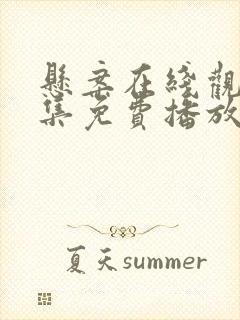 懸案在綫觀
集免費播放
夏天summer